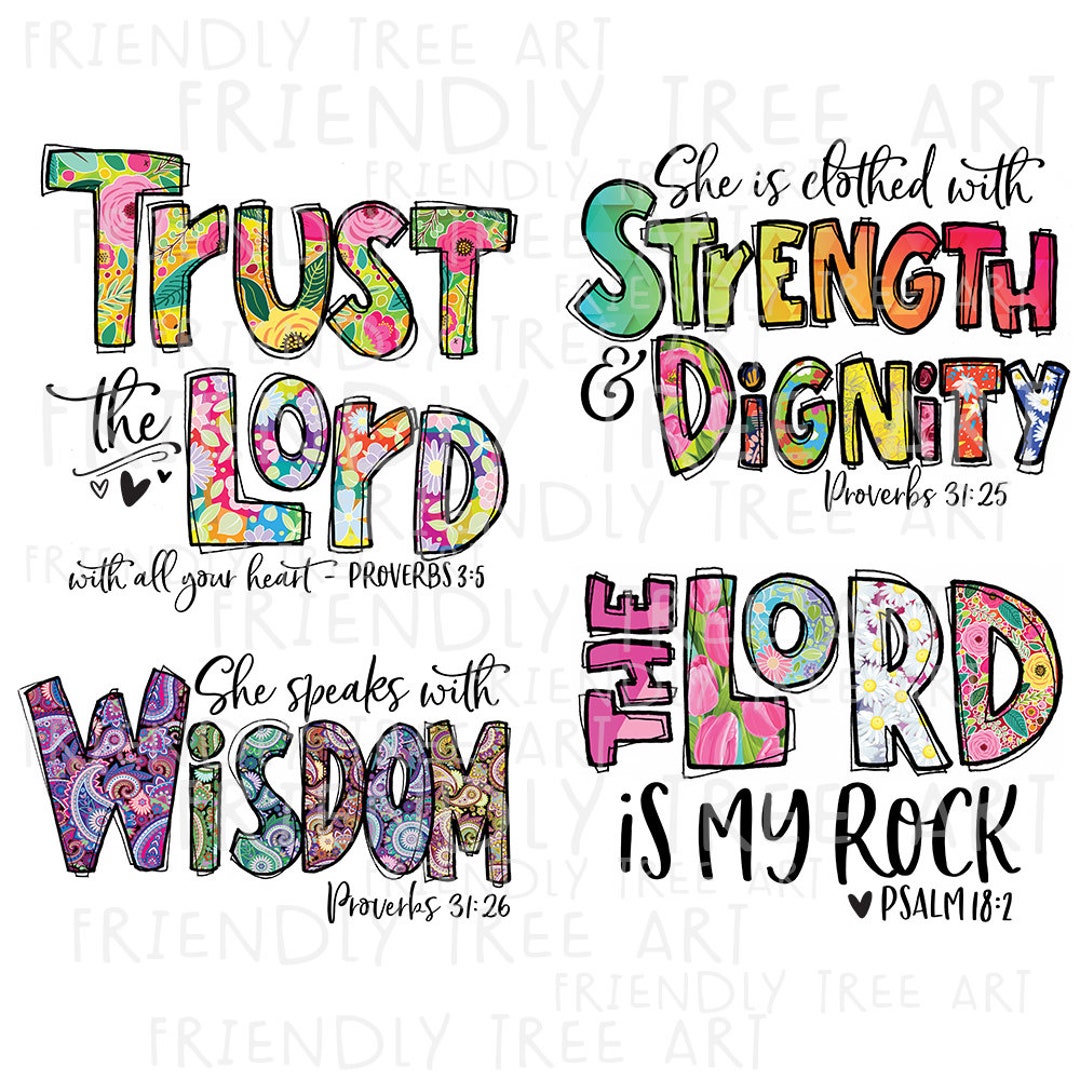 FRIENDLY TREE ART
FRIENDLY TREE ART
FRIENDLY TREE ART
TrUST
the LOrD
with all your heart - PROVERBS 3:5
She is clothed with
STrENGTH
& DiGNiTY
Proverbs 31:25
She speaks with
WiSDOM
Proverbs 31:26
THE LORD
iS MY ROCK
PSALM 18:2
FRIENDLY TREE ART
FRIENDLY TREE ART
FRIENDLY TREE ART
FRIENDLY TREE ART